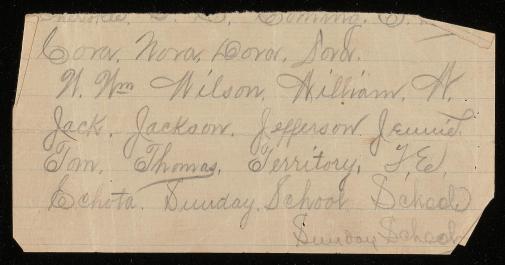 Cherokee, S. D., Comming, S.
Cora, Nora, Dora, Lora.
W. Wm Wilson, William, W.
Jack, Jackson, Jefferson, Jennie.
Tom, Thomas, Territory, T, E,
Echota. Sunday, School School
Sunday School